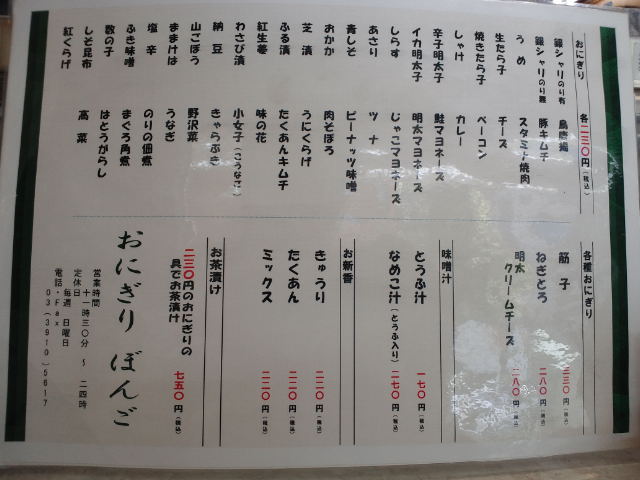 おにぎり 各二三〇円(税込)
銀シャリのり有
銀シャリのり無
うめ
生たら子
焼きたら子
しゃけ
辛子明太子
イカ明太子
しらす
あさり
青しそ
おかか
芝漬
ふる漬
紅生姜
わさび漬
納豆
山ごぼう
ままけは
塩辛
ふき味噌
数の子
しそ昆布
紅くらげ
鳥唐揚
豚キムチ
スタミナ焼肉
チーズ
ベーコン
カレー
鮭マヨネーズ
明太マヨネーズ
じゃこマヨネーズ
ツナ
ピーナッツ味噌
肉そぼろ
うにくらげ
たくあんキムチ
味の花
小女子(こうなご)
きゃらぶき
野沢菜
うなぎ
のりの佃煮
まぐろ角煮
はとうがらし
高菜
各種おにぎり
筋子 二三〇円(税込)
ねぎとろ 二八〇円(税込)
明太クリームチーズ 二八〇円(税込)
味噌汁
とうふ汁 一七〇円(税込)
なめこ汁(とうふ入り) 二七〇円(税込)
お新香
きゅうり 二二〇円(税込)
たくあん 二二〇円(税込)
ミックス 二二〇円(税込)
お茶漬け
二三〇円のおにぎりの
具でお茶漬け 七五〇円(税込)
おにぎり ぼんご
営業時間 十一時三〇分 ～ 二四時
定休日 毎週 日曜日
電話・Fax 03(3910)5617